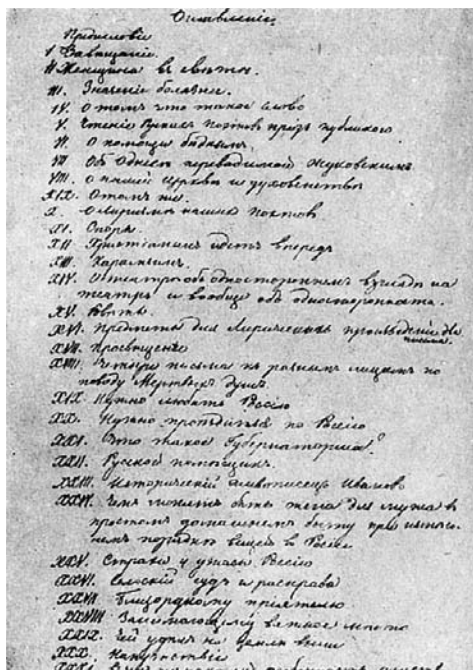 Оглавленіе
Предисловіе
I Завѣщаніе.
II Женщина въ свѣтѣ.
III. Значеніе болѣзней.
IV. О томъ что такое слово
V. Чтеніе Русскихъ поэтовъ предъ публикою
VI. О помощи бѣднымъ.
VII Объ Одиссеѣ переводимой Жуковскимъ
VIII. О нашей церкви и духовенствѣ
О томъ же.
X. О лиризмѣ нашихъ поэтовъ
XI. Споры
XII Христіанинъ идетъ впередъ
XIII. Карамзинъ.
XIV. О театрѣ объ одностороннемъ взглядѣ на
театръ и вообще объ односторонности.
XV.
XVI. Предметы для лирическихъ
XVII. Просвѣщеніе
XVIII. Четыре письма къ разнымъ лицамъ по
поводу Мертвыхъ душъ.
XIX. Нужно любить Россію
XX. Нужно проѣздиться по Россіи
XXI. Что такое Губернаторша?
XXII. Русской помѣщикъ.
XXIII. Историческій живописецъ Ивановъ
XXIV. Чѣмъ можетъ быть жена для мужа въ
простомъ домашнемъ быту при нынѣш-
немъ порядкѣ вещей въ Россіи
XXV. Страхи и ужасы Россіи
XXVI. Сельскій судъ и расправа
XXVII. Близорукому пріятелю
XXVIII Занимающему важное мѣсто
XXIX. Чей удѣлъ на землѣ выше
XXX. Напутствіе